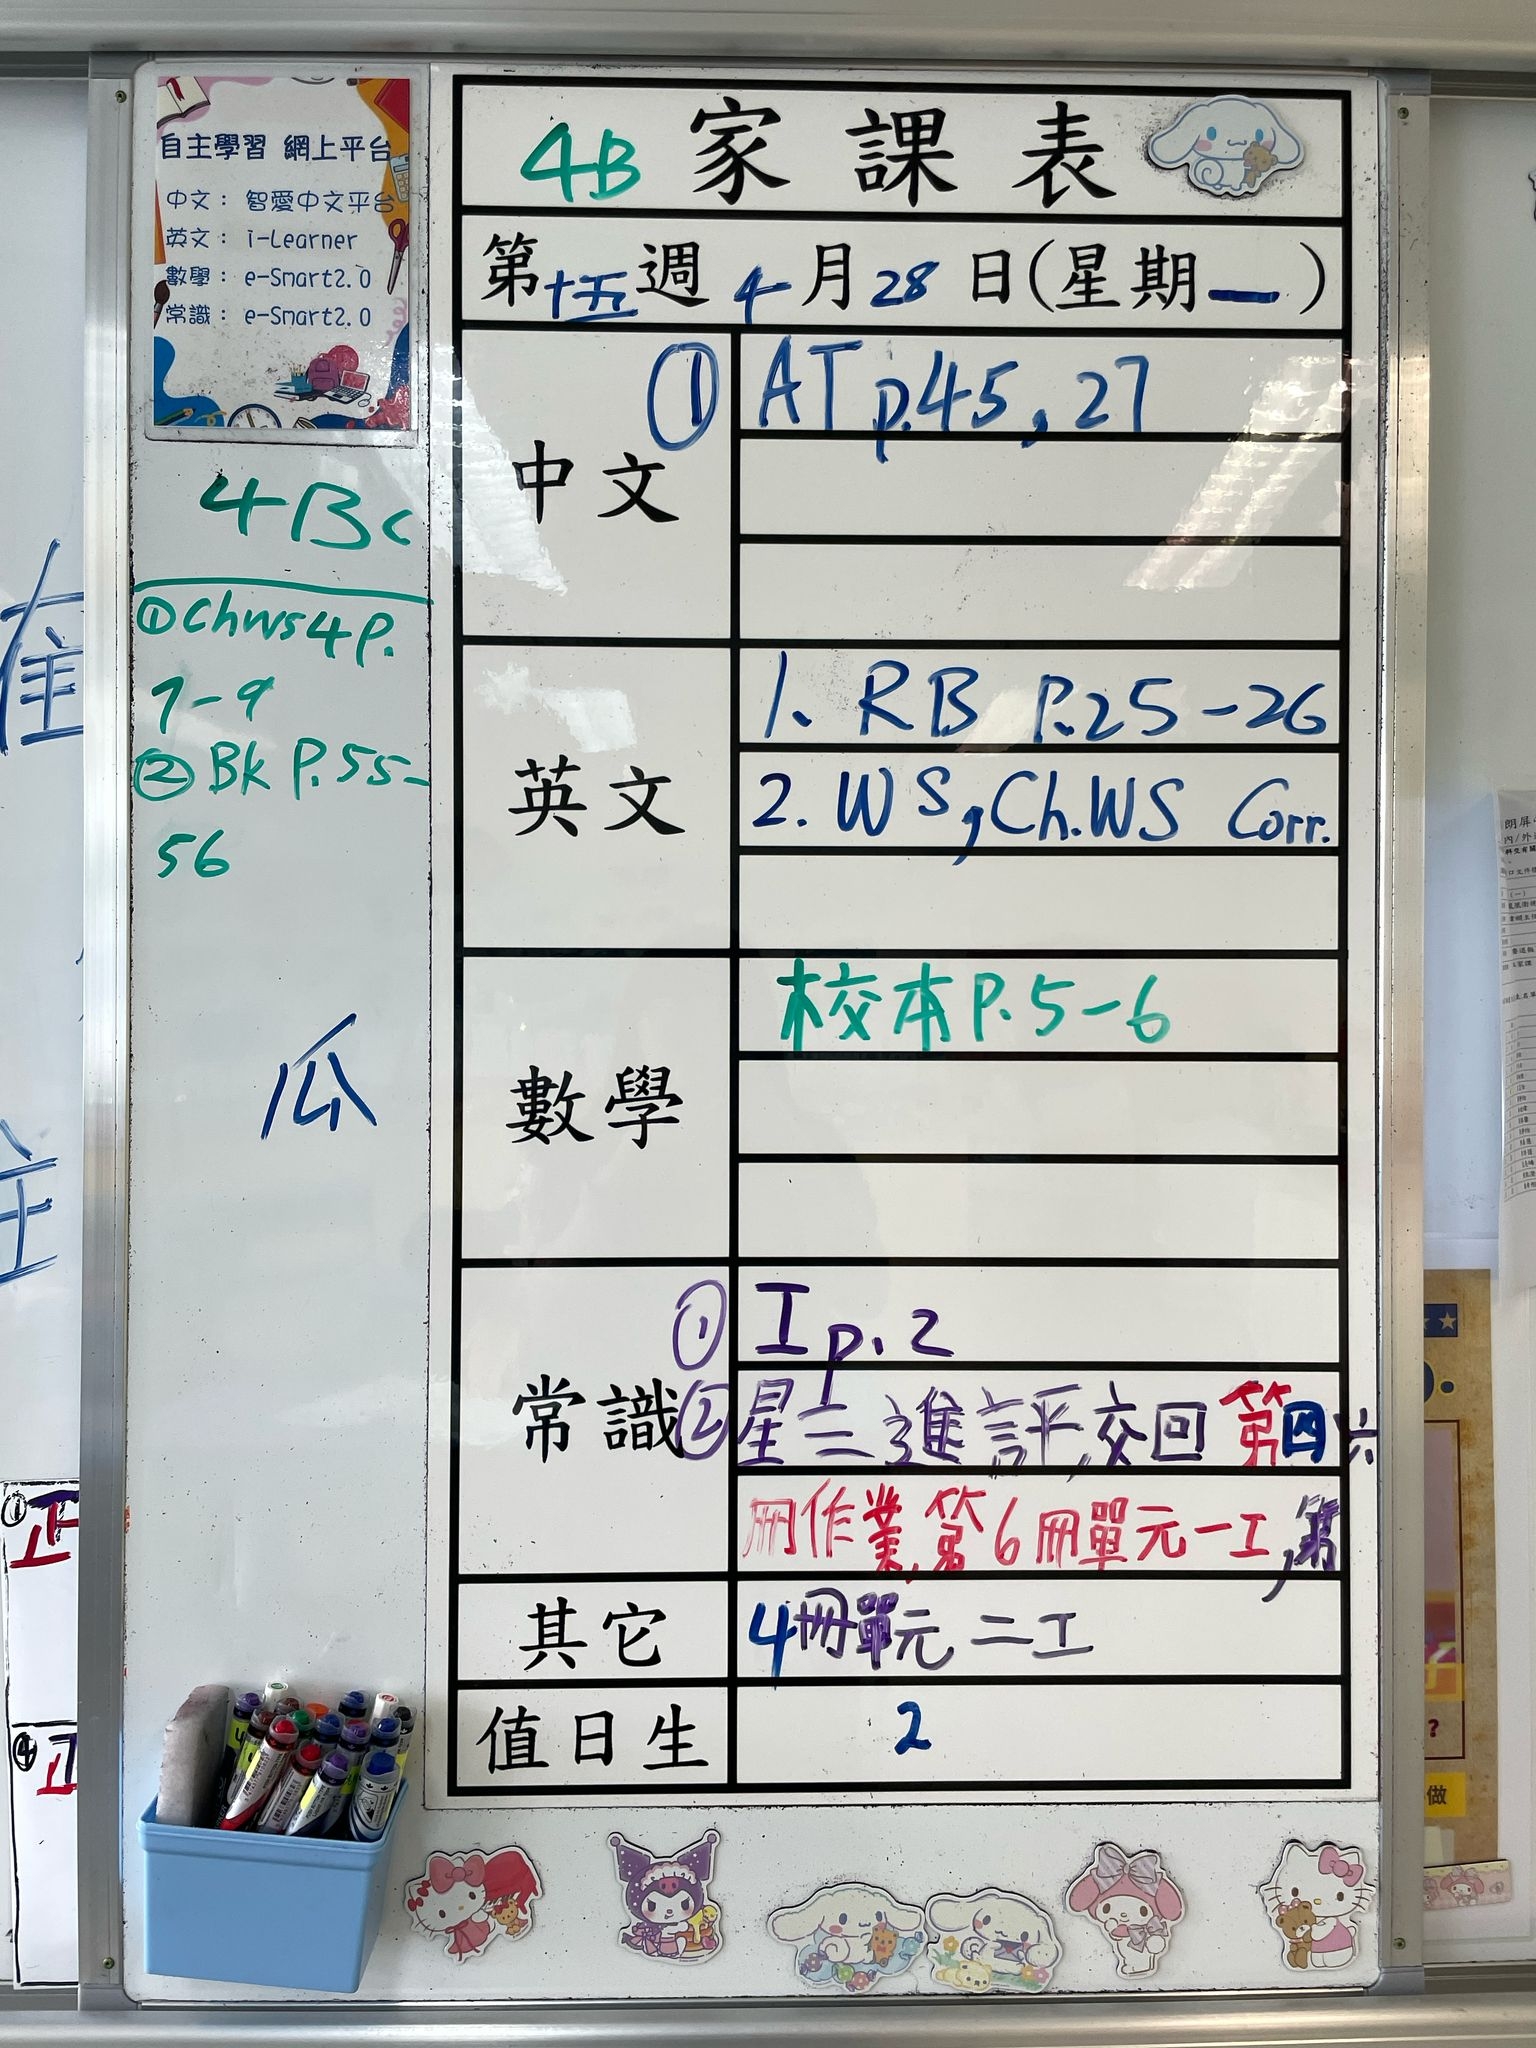 自主學習 網上平台
中文： 智愛中文平台
英文： i-Learner
數學： e-Smart2.0
常識： e-Smart2.0
4B 家課表
第十五週 4月28日(星期一)
中文
① AT p.45, 27
英文
1. RB P.25-26
2. WS, Ch.WS Corr.
數學
校本 P.5-6
常識
① I p.2
② 星三進評,交回第四六
冊作業,第6冊單元一工,第
其它
4冊單元二工
值日生
2
4Bc
①ChWs4 P.
7-9
②Bk P.55-
56
瓜
①正
④正
?
做